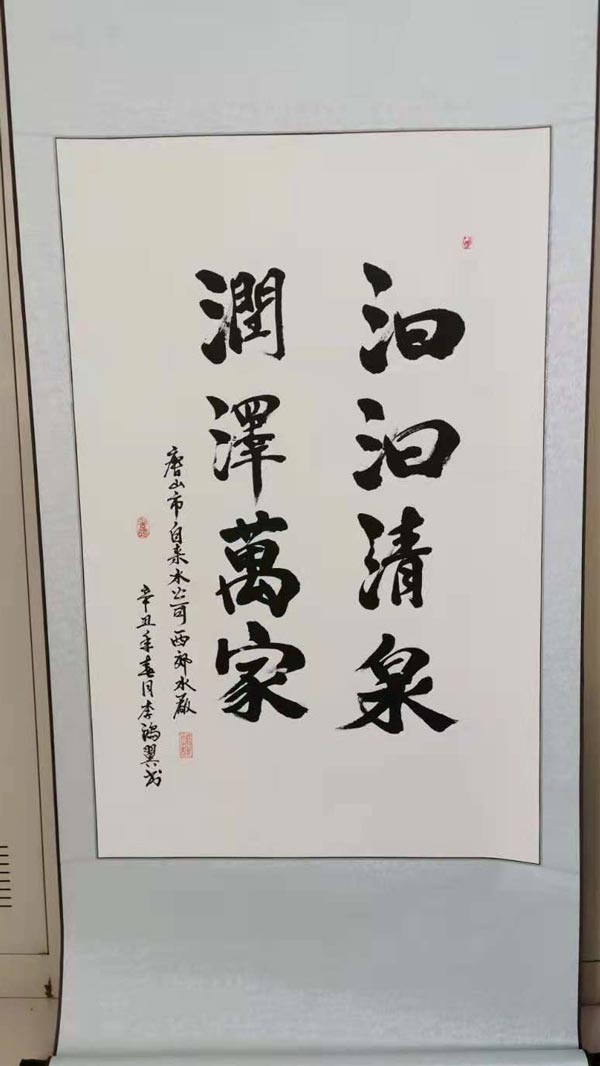 汩汩清泉
潤澤萬家
唐山市自来水公司西郊水厰
辛丑年春月李鴻翼书